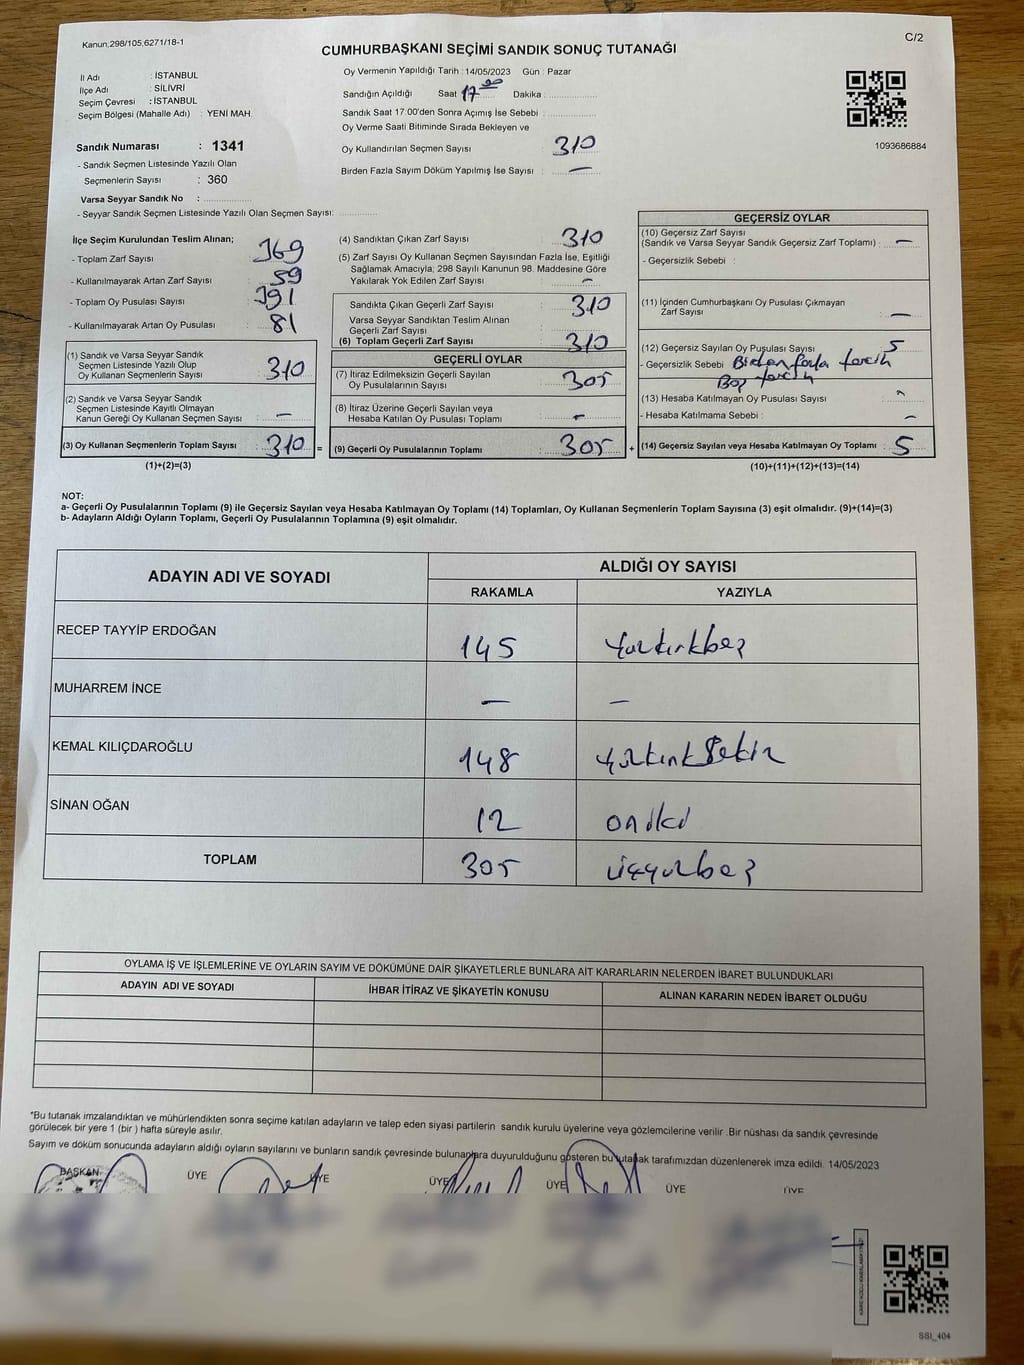 Kanun,298/105,6271/18-1
C/2
CUMHURBAŞKANI SEÇİMİ SANDIK SONUÇ TUTANAĞI
İl Adı : İSTANBUL
İlçe Adı : SİLİVRİ
Seçim Çevresi : İSTANBUL
Seçim Bölgesi (Mahalle Adı) : YENİ MAH.
Oy Vermenin Yapıldığı Tarih :14/05/2023 Gün : Pazar
Sandığın Açıldığı Saat 17 00 Dakika :
Sandık Saat 17:00'den Sonra Açımış İse Sebebi :
Oy Verme Saati Bitiminde Sırada Bekleyen ve
Oy Kullandırılan Seçmen Sayısı : 310
Birden Fazla Sayım Döküm Yapılmış İse Sayısı : —
1093686884
Sandık Numarası : 1341
- Sandık Seçmen Listesinde Yazılı Olan
Seçmenlerin Sayısı : 360
Varsa Seyyar Sandık No :
- Seyyar Sandık Seçmen Listesinde Yazılı Olan Seçmen Sayısı:
İlçe Seçim Kurulundan Teslim Alınan;
- Toplam Zarf Sayısı : 369
- Kullanılmayarak Artan Zarf Sayısı : 59
- Toplam Oy Pusulası Sayısı : 391
- Kullanılmayarak Artan Oy Pusulası : 81
(1) Sandık ve Varsa Seyyar Sandık
Seçmen Listesinde Yazılı Olup
Oy Kullanan Seçmenlerin Sayısı : 310
(2) Sandık ve Varsa Seyyar Sandık
Seçmen Listesinde Kayıtlı Olmayan
Kanun Gereği Oy Kullanan Seçmen Sayısı : —
(3) Oy Kullanan Seçmenlerin Toplam Sayısı : 310 =
(1)+(2)=(3)
(4) Sandıktan Çıkan Zarf Sayısı : 310
(5) Zarf Sayısı Oy Kullanan Seçmen Sayısından Fazla İse, Eşitliği
Sağlamak Amacıyla, 298 Sayılı Kanunun 98. Maddesine Göre
Yakılarak Yok Edilen Zarf Sayısı : —
Sandıkta Çıkan Geçerli Zarf Sayısı : 310
Varsa Seyyar Sandıktan Teslim Alınan
Geçerli Zarf Sayısı :
(6) Toplam Geçerli Zarf Sayısı : 310
GEÇERLİ OYLAR
(7) İtiraz Edilmeksizin Geçerli Sayılan
Oy Pusulalarının Sayısı : 305
(8) İtiraz Üzerine Geçerli Sayılan veya
Hesaba Katılan Oy Pusulası Toplamı : —
(9) Geçerli Oy Pusulalarının Toplamı : 305 +
GEÇERSİZ OYLAR
(10) Geçersiz Zarf Sayısı
(Sandık ve Varsa Seyyar Sandık Geçersiz Zarf Toplamı) : —
- Geçersizlik Sebebi :
(11) İçinden Cumhurbaşkanı Oy Pusulası Çıkmayan
Zarf Sayısı : —
(12) Geçersiz Sayılan Oy Pusulası Sayısı : 5
- Geçersizlik Sebebi : Birden fazla tercih
Boş tercih
(13) Hesaba Katılmayan Oy Pusulası Sayısı : —
- Hesaba Katılmama Sebebi : —
(14) Geçersiz Sayılan veya Hesaba Katılmayan Oy Toplamı : 5
(10)+(11)+(12)+(13)=(14)
NOT:
a- Geçerli Oy Pusulalarının Toplamı (9) ile Geçersiz Sayılan veya Hesaba Katılmayan Oy Toplamı (14) Toplamları, Oy Kullanan Seçmenlerin Toplam Sayısına (3) eşit olmalıdır. (9)+(14)=(3)
b- Adayların Aldığı Oyların Toplamı, Geçerli Oy Pusulalarının Toplamına (9) eşit olmalıdır.
ADAYIN ADI VE SOYADI
ALDIĞI OY SAYISI
RAKAMLA YAZIYLA
RECEP TAYYİP ERDOĞAN 145 Yüzkırkbeş
MUHARREM İNCE — —
KEMAL KILIÇDAROĞLU 148 Yüzkırksekiz
SİNAN OĞAN 12 oniki
TOPLAM 305 üçyüzbeş
OYLAMA İŞ VE İŞLEMLERİNE VE OYLARIN SAYIM VE DÖKÜMÜNE DAİR ŞİKAYETLERLE BUNLARA AİT KARARLARIN NELERDEN İBARET BULUNDUKLARI
ADAYIN ADI VE SOYADI İHBAR İTİRAZ VE ŞİKAYETİN KONUSU ALINAN KARARIN NEDEN İBARET OLDUĞU
*Bu tutanak imzalandıktan ve mühürlendikten sonra seçime katılan adayların ve talep eden siyasi partilerin sandık kurulu üyelerine veya gözlemcilerine verilir .Bir nüshası da sandık çevresinde
görülecek bir yere 1 (bir ) hafta süreyle asılır.
Sayım ve döküm sonucunda adayların aldığı oyların sayılarını ve bunların sandık çevresinde bulunanlara duyurulduğunu gösteren bu tutanak tarafımızdan düzenlenerek imza edildi. 14/05/2023
BAŞKAN ÜYE ÜYE ÜYE ÜYE ÜYE ÜYE
SSI_404